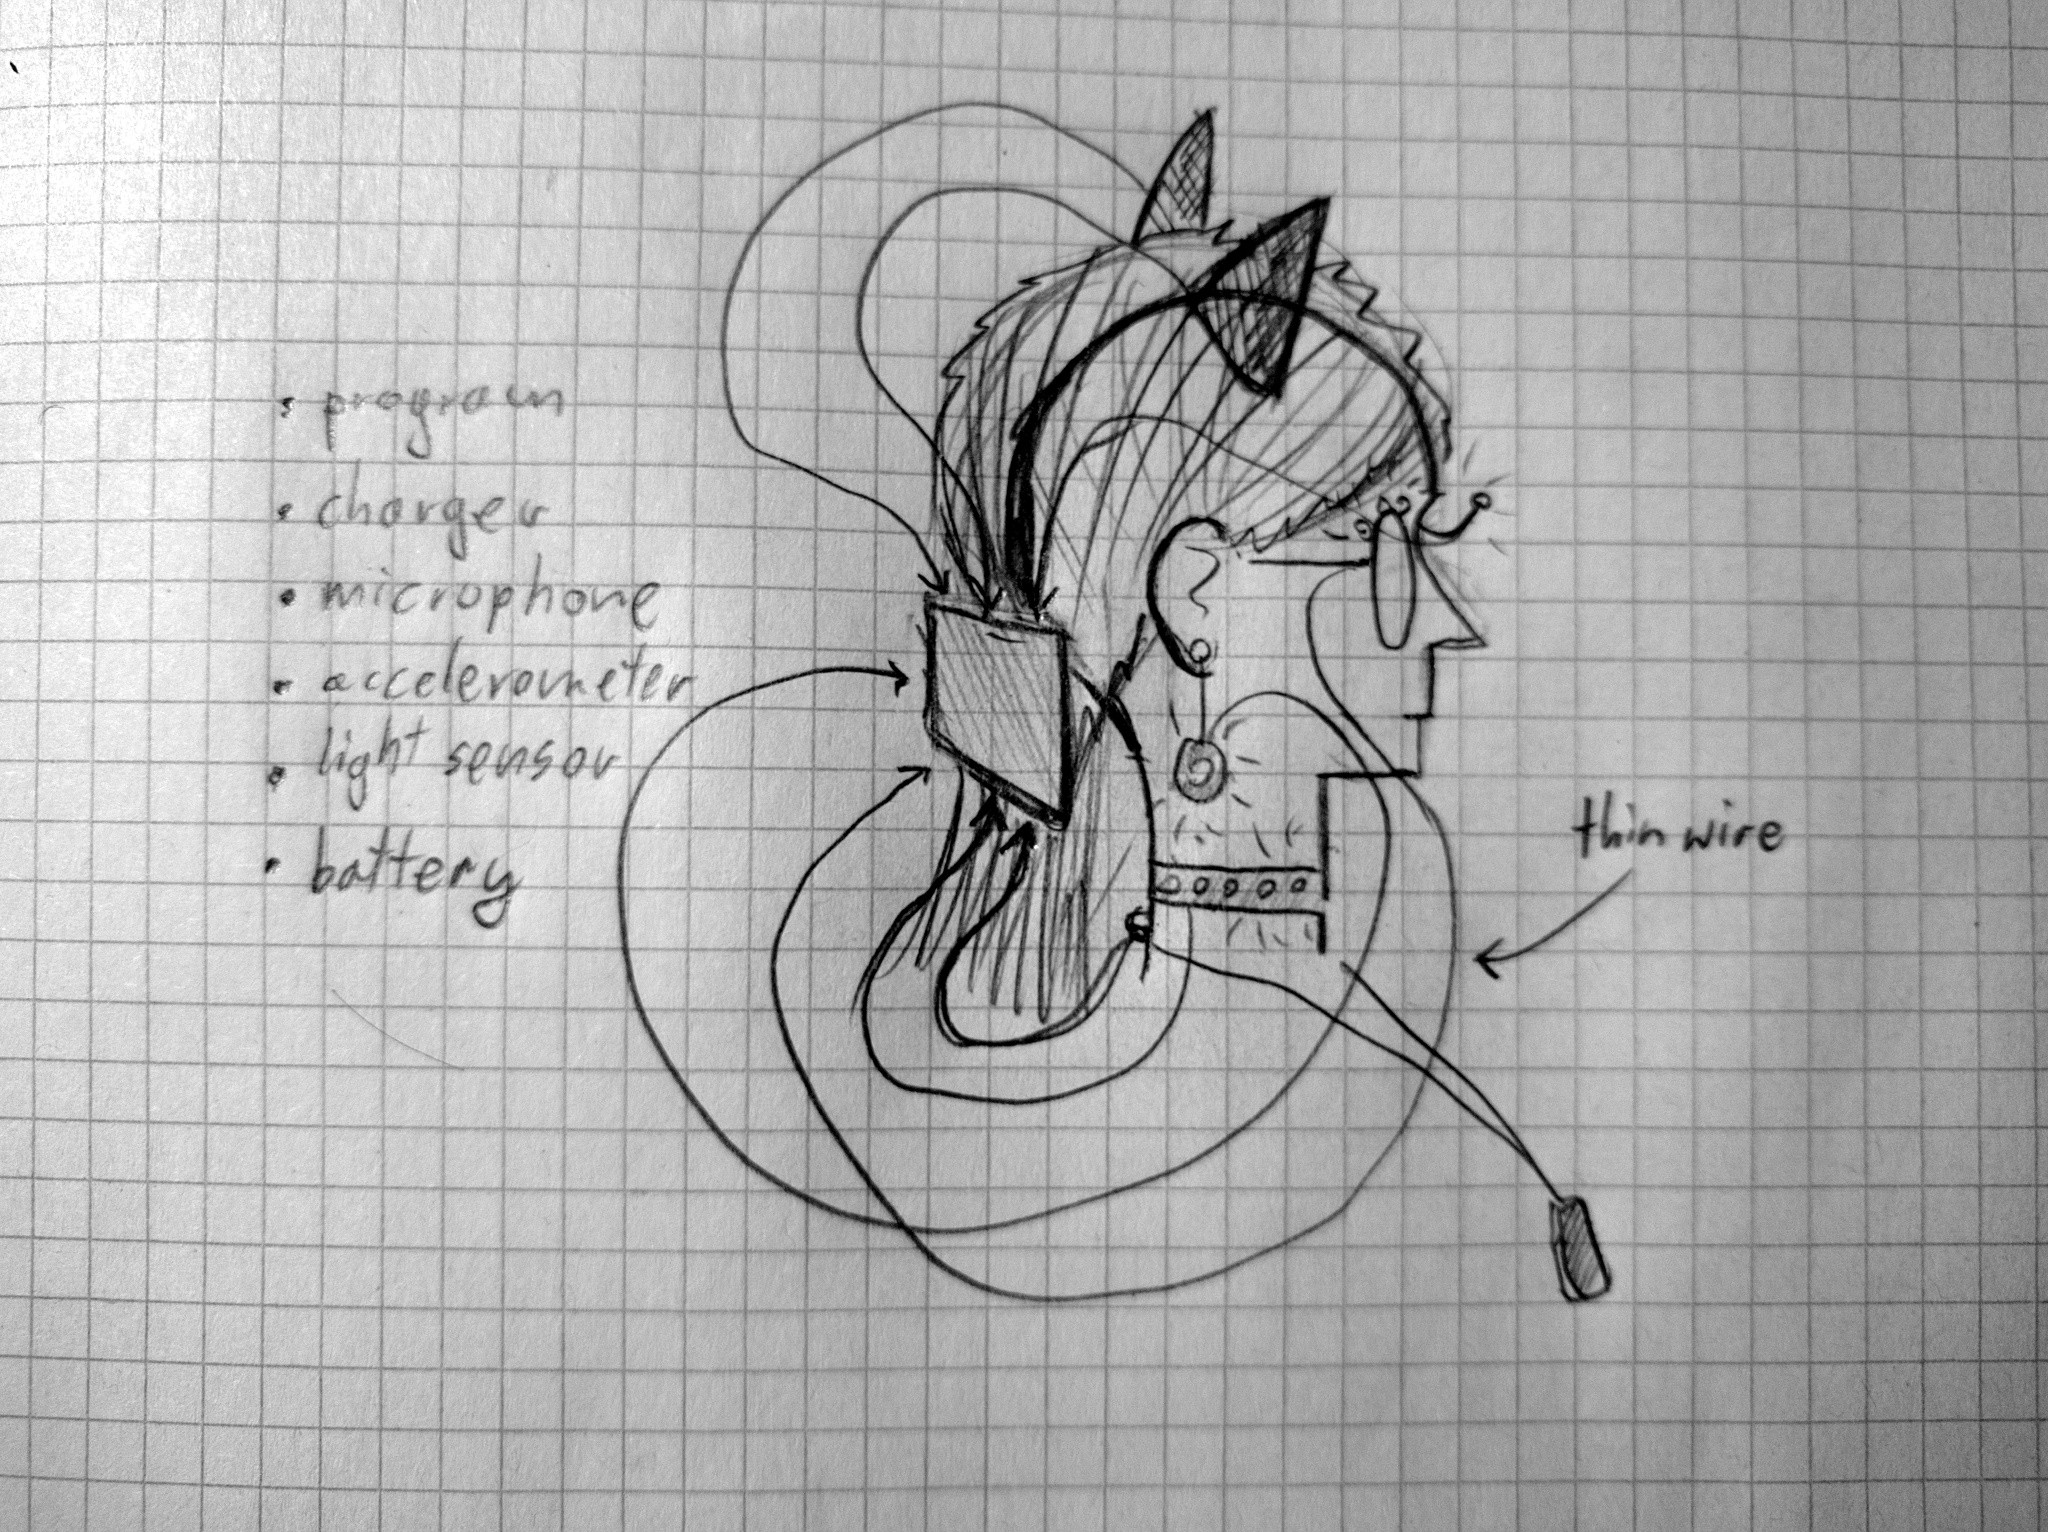 • program
• charger
• microphone
• accelerometer
• light sensor
• battery
thin wire